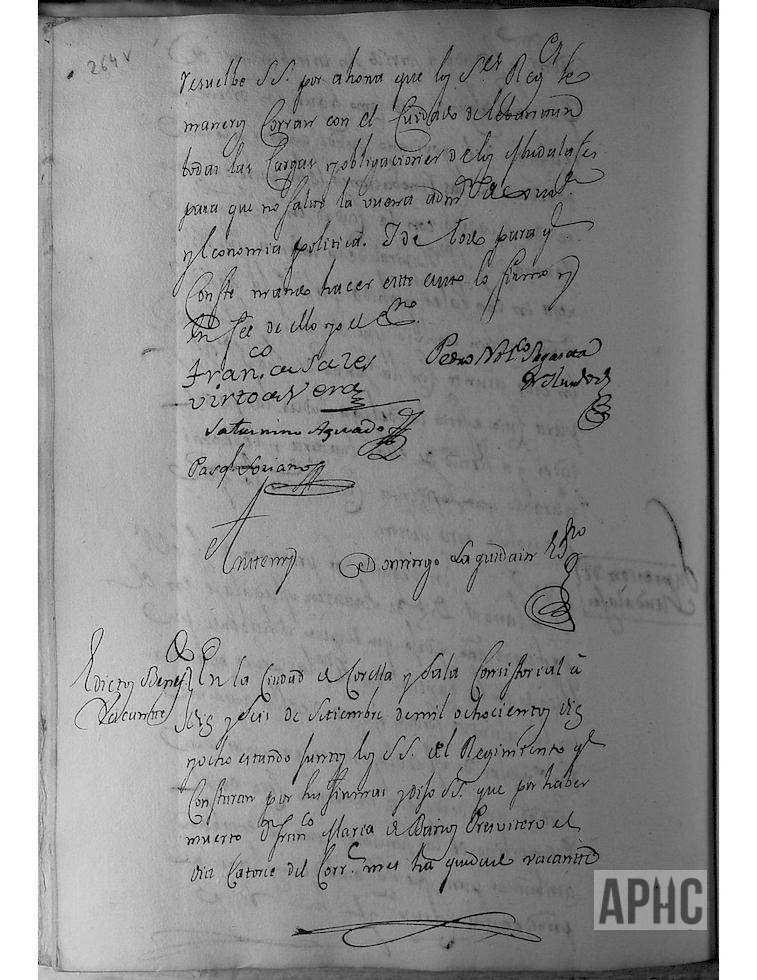 264 v
resuelbe SS. por ahora que los S.res Reg.es te
maneros Corran con el Cuidado de
todas las Cargas y obligaciones de los Mudalafes
para que no falte la vuena adm.on
y Economia politica. Y de todo para q.e
Conste mando hacer este auto lo firmo y
En fee de ello yo el Ess.no
Fran.co de Sales
Virto de Vera
Pedro
Saturnino Aguado
Pasq.l Soriano
Antemi Domingo Laguidain Ess.no
Edictos Benef.
Vacante
En la Ciudad de Corella y Sala Consistorial à
diez y seis de Setiembre de mil ochocientos diez
y ocho estando juntos los SS. del Regimiento q.e
Constaran por sus firmas y dijo SS. que por haber
muerto D.n Fran.co Maria de Baños Presvitero el
dia Catorce del Corr.te mes ha quedado vacante
APHC